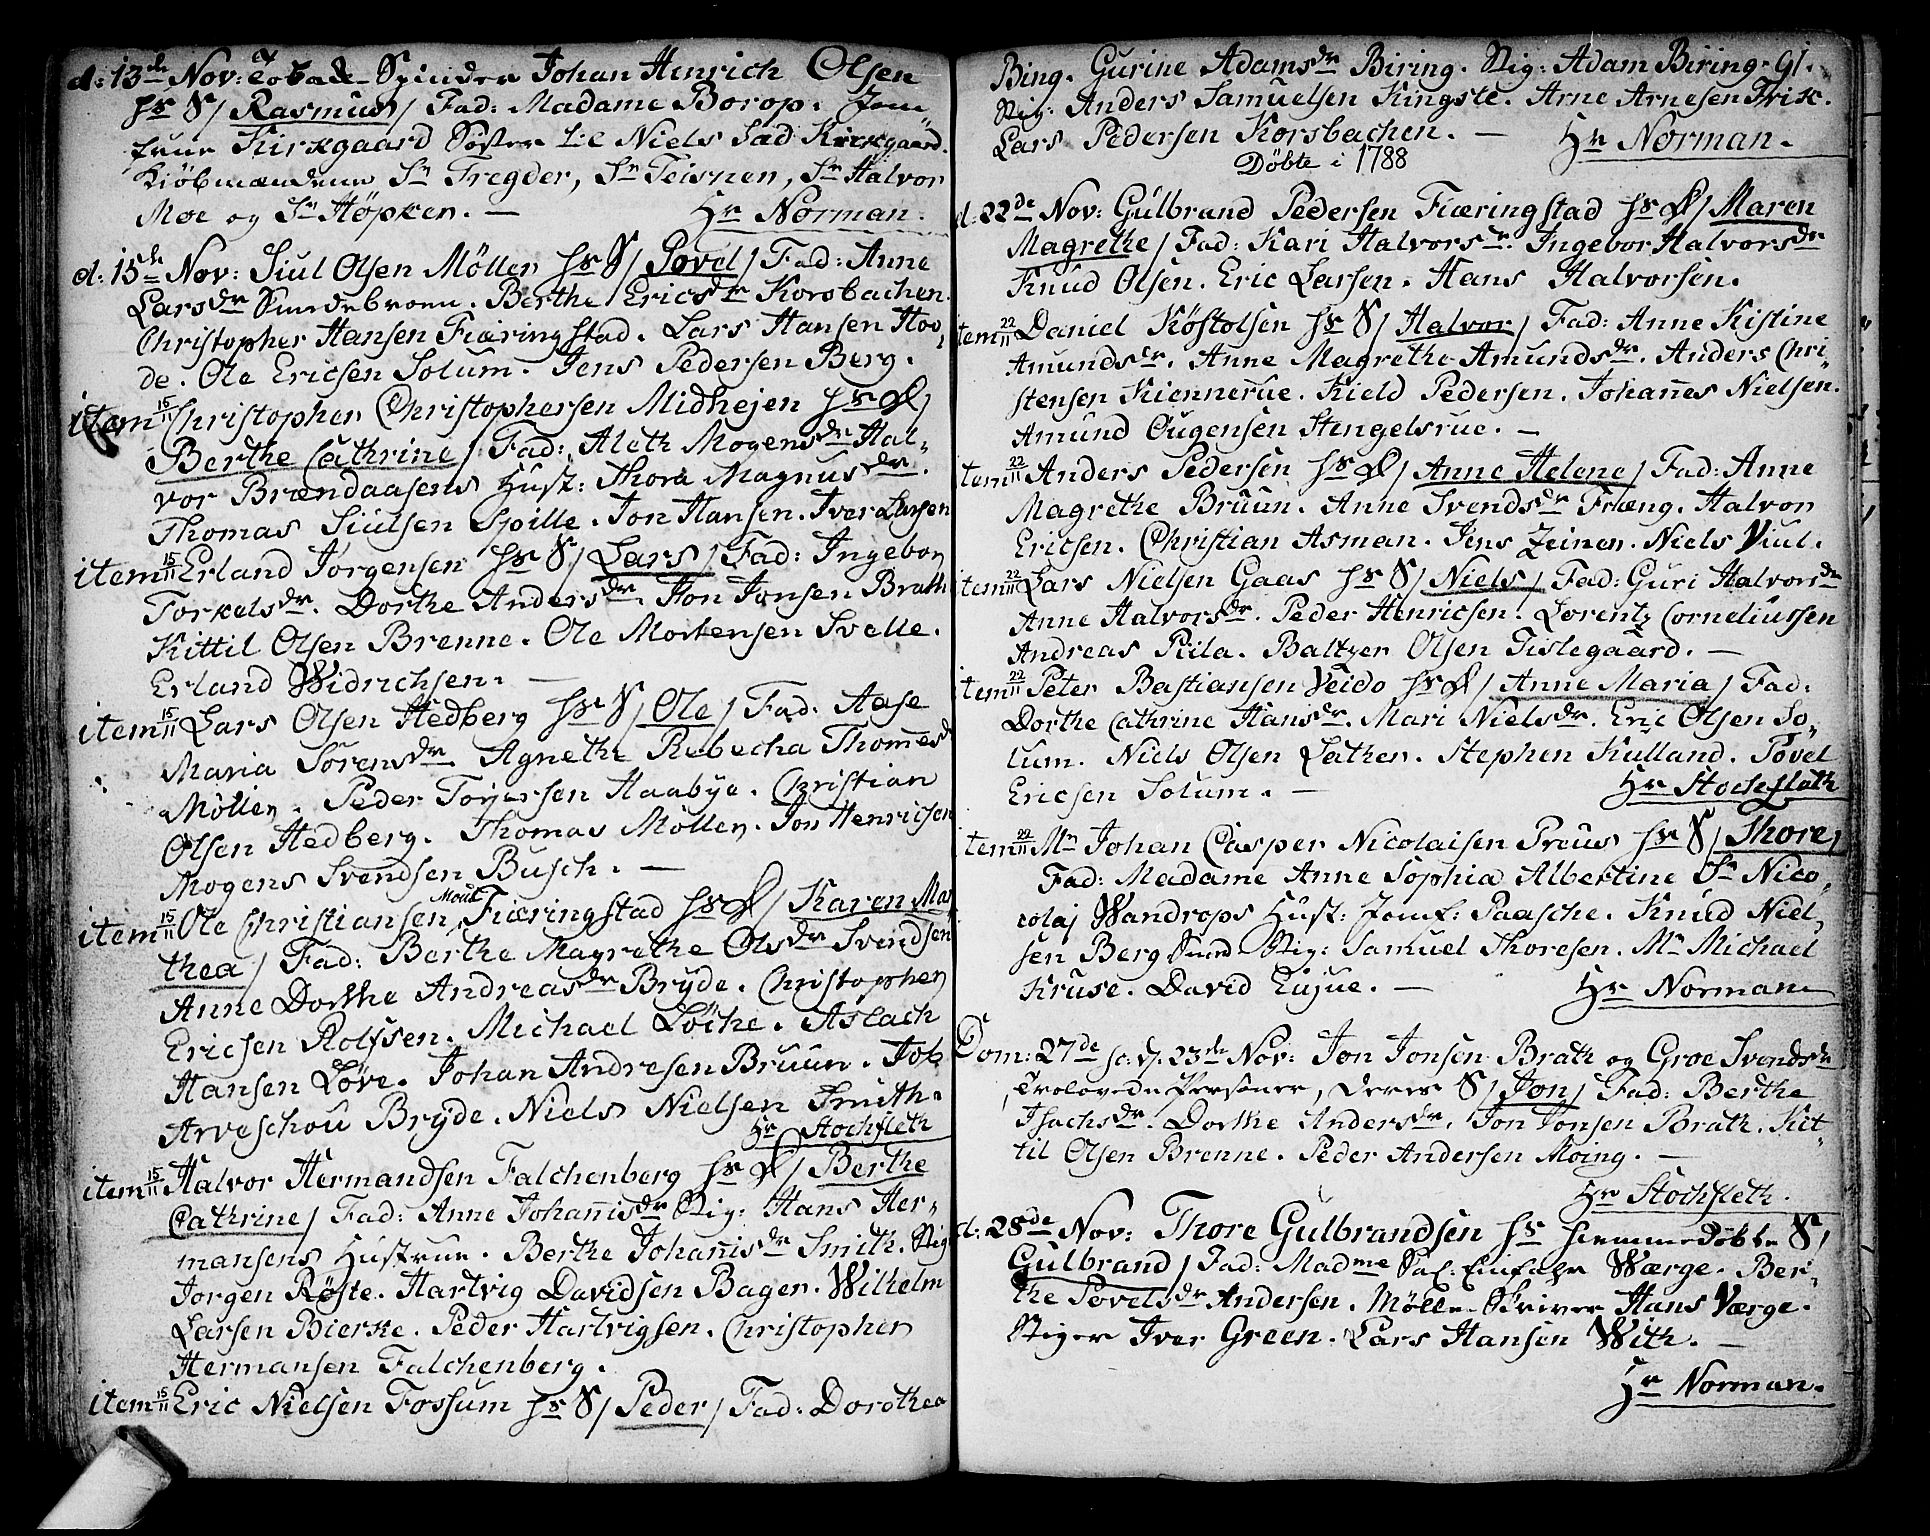 d: 13de Nov: Tobak Spinder Johan Henrich Olsen
hs S/ Rasmus/ Fad: Madame Borop. Jom¬
frue Kirkgaard Söster til Niels Sad Kirkgaard.
Kiöbmændene Sr Tregder, Sr Teisnen, Sr Halvor
Moe og Sr Höpken. — Hr Norman.
d: 15de Nov: Siul Olsen Möller hs S/ Povel/ Fad: Anne
Larsdr Sundebroen. Berthe Ericsdr Korsbachen.
Christopher Hansen Fiæringstad. Lars Hansen Hoo¬
de. Ole Ericsen Solum. Jens Pedersen Berg.
item 15/11 Christopher Christophersen Midhejen hs D/
Berthe Cathrine/ Fad: Aleth Mogensdr Hal¬
vor Brændaasens Hust: Thora Magnusdr.
Thomas Siulsen Spille. Jon Hansen. Iver Larsen
item 15/11 Erland Jörgensen hs S/ Lars/ Fad: Ingebor
Torkelsdr. Dorthe Andersdr. Jon Jonsen Brath
Kittil Olsen Brenne. Ole Mortensen Svelle.
Erland Widrichsen. —
item 15/11 Lars Olsen Hedberg hs S/ Ole/ Fad: Aase
Maria Sörensdr Agnethe Rebecha Thomesd
Möller. Peder Torjersen Haabye. Christian
Olsen Hedberg. Thomas Möller. Jon Henricsen
Mogens Svendsen Busch. —
item 15/11 Ole Christiansen Fiæringstad hs D/ Karen Mar
thea/ Fad: Berthe Magrethe Olsdr Svendsen
Anne Dorthe Andreasdr Bryde. Christopher
Ericsen Rolfsen. Michael Löcke. Aslach
Hansen Löve. Johan Andresen Bruun. Job
Arveschou Bryde. Niels Nielsen Smith.
Hr Stochfleth
item 15/11 Halvor Hermandsen Falchenberg hs D/ Berthe
Cathrine/ Fad: Anne Johannisdr Stig: Hans Her¬
mansens Hustrue. Berthe Johannisdr Smith. Stig
Jörgen Röste. Hartvig Davidsen Bager. Wilhelm
Larsen Bierke. Peder Hartvigsen. Christopher
Hermansen Falchenberg.
item 15/11 Eric Nielsen Fossum hs S/ Peder/ Fad: Dorothea
Bing. Gurine Adamsdr Biring. Stig: Adam Biring. 91.
Stig: Anders Samuelsen Kingste. Arne Arnesen Frik.
Lars Pedersen Korsbachen. — Hr Norman.
Döbte i 1788
d: 22de Nov: Gulbrand Pedersen Fiæringstad hs D/ Maren
Magrethe/ Fad: Kari Halvorsdr. Ingebor Halvorsdr
Knud Olsen. Eric Larsen. Hans Halvorsen.
item 22/11 Daniel Köstolsen hs S/ Halvor/ Fad: Anne Kistine
Amundsdr. Anne Magrethe Amundsdr. Anders Chri¬
stensen Kiennerue. Kield Pedersen. Johannes Nielsen.
Amund Ougensen Stengelsrue. —
item 22/11 Anders Pedersen hs D/ Anne Helene/ Fad: Anne
Magrethe Bruun. Anne Svendsdr Fræng. Halvor
Ericsen. Christian Asman. Jens Zeiner. Niels Viul.
item 22/11 Lars Nielsen Gaas hs S/ Niels/ Fad: Guri Halvorsdr
Anne Halvorsdr. Peder Henricsen. Lorentz Corneliussen
Andreas Piila. Baltzer Olsen Tislegaard. —
item 22/11 Peter Bastiansen Veido hs D/ Anne Maria/ Fad:
Dorthe Cathrine Hansdr. Mari Nielsdr. Eric Olsen So¬
lum. Niels Olsen Lather. Stephen Kulland. Povel
Ericsen Solum. — Hr Stochfleth
item 22/11 Mr Johan Casper Nicolaisen Preus hs S/ Thore/
Fad: Madame Anne Sophia Albertine Sr Nico¬
colaj Wandrops Hust: Jomf: Paasche. Knud Niel¬
sen Berg Sund Stig: Samuel Thoresen. Mr Michael
Kruse. David Eujue. — Hr Norman.
Dom: 27de sc: d. 23de Nov: Jon Jonsen Brath og Groe Svendsdr
Trolovede Personer, deres S/ Jon/ Fad: Berthe
Isachsdr. Dorthe Andersdr. Jon Jonsen Brath. Kit¬
til Olsen Brenne. Peder Andersen Moing. —
Hr Stochfleth.
d: 28de Nov: Thore Gulbrandsen hs hiemmedöbte S/
Gulbrand/ Fad: Madme Sal: Einfalts Wærge. Ber¬
the Povelsdr Andersen. Mölle Skriver Hans Værge.
Stiger Iver Green. Lars Hansen With. —
Hr Norman.